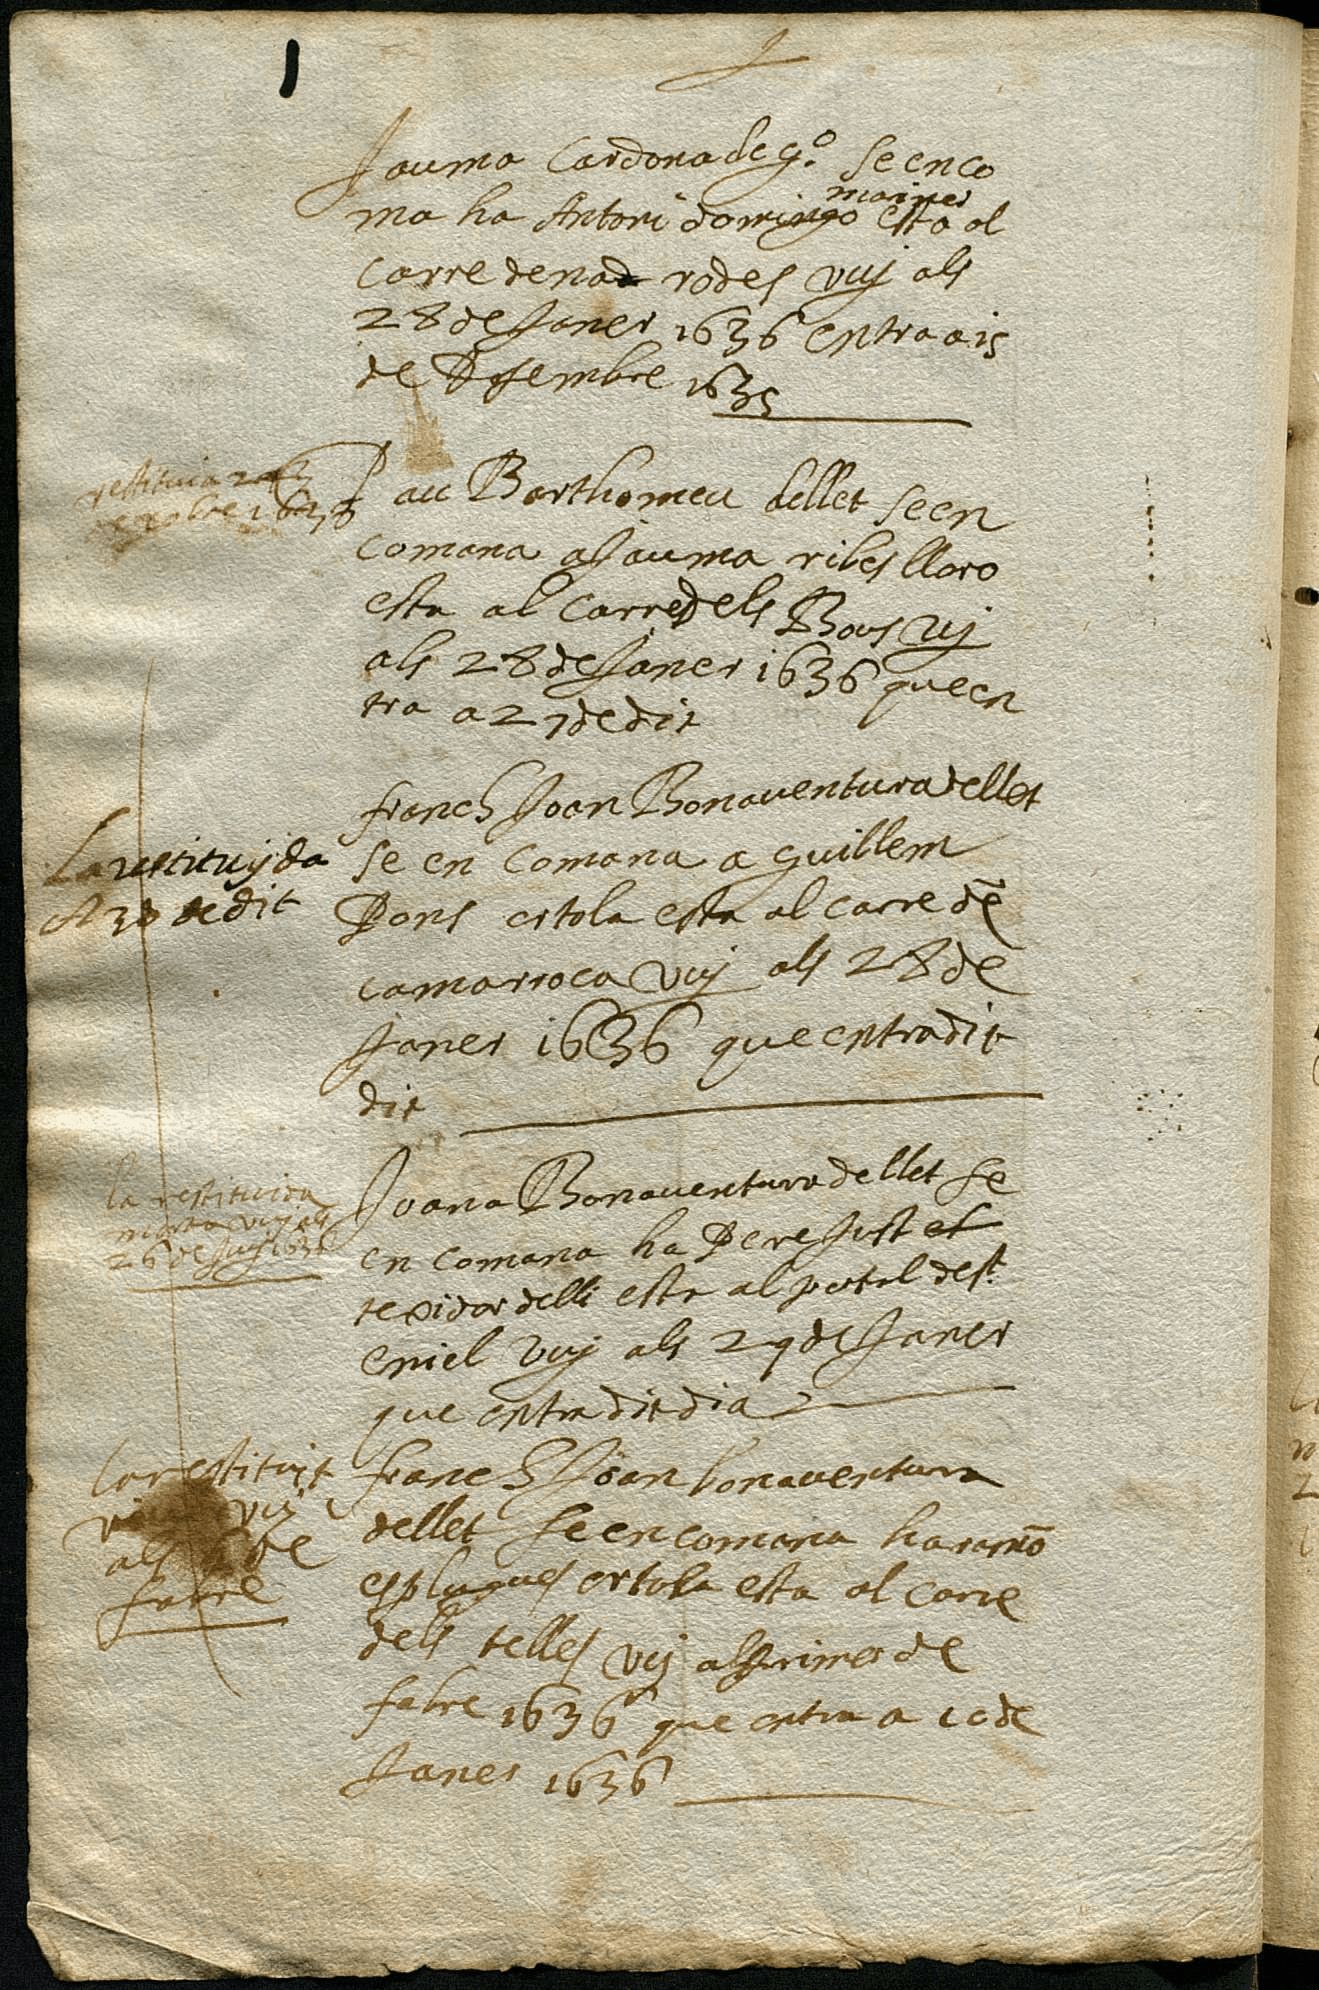 Jauma Cardona de g.o se enco
ma ha Antoni domingo mariner esta al
carre de na rodes vuj als
28 de Janer 1636 entra a 15
de Desembre 1635
restituida 24
1636
Pau Barthomeu dellet se en
comana a Jauma ribes llaro
esta al carre dels Bous vuj
als 28 de Janer 1636 que en
tra a 27 de dit
franch Joan Bonaventura dellet
La restituyda
A 30 de dit
se en comana a guillem
Pons ortola esta al carre dẽ
camarroca vuj als 28 de
Janer 1636 que entra dit
dit
la restituida
morta vuj als
26 de Juny 1636
Joana Bonaventura dellet se
en comana ha Pere Just el
texidor delli esta al portal de st.
oniel vuj als 29 de Janer
que entra dit dia
la restituit
vuj
als de
fabre
franch Joan bonaventura
dellet se en comana ha ramõ
esplugues ortola esta al carre
dels telles vuj als primer de
fabre 1636 que entra a 10 de
Janer 1636